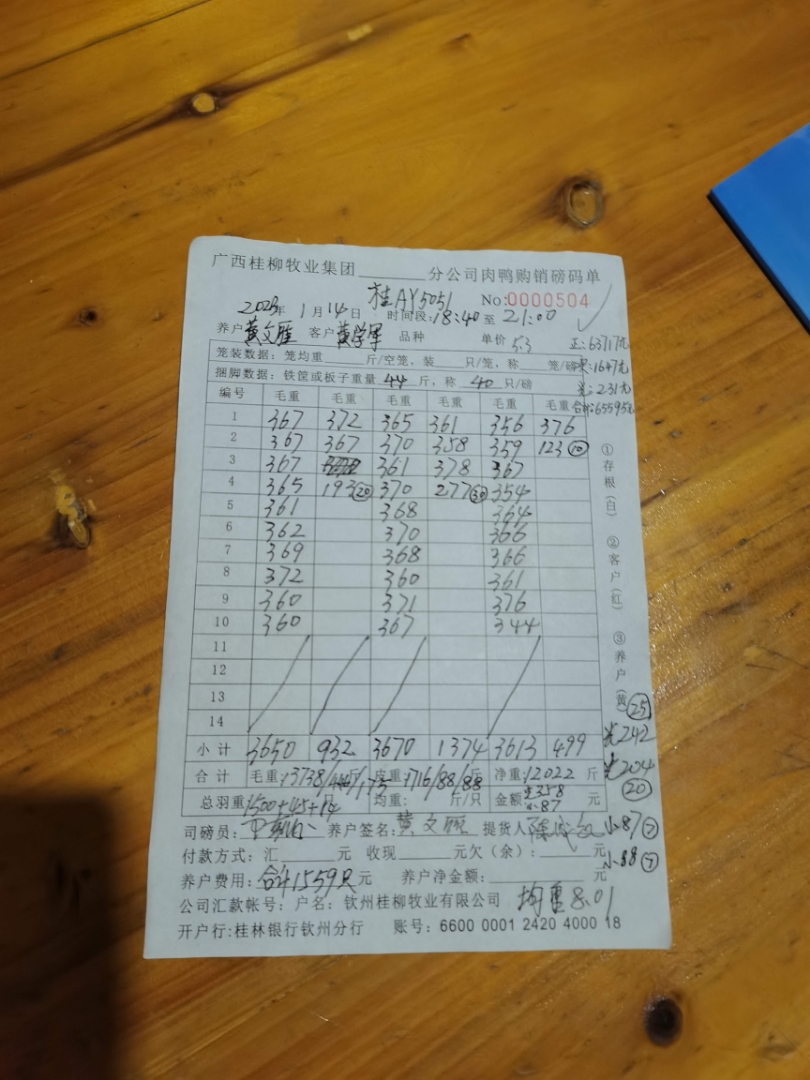 广西桂柳牧业集团________分公司肉鸭购销磅码单
2023年 1月14日 桂AY5051 No:0000504
时间段:18:40至 21:00
养户 黄文雅 客户 黄学军 品种 单价 5.3 正:63717元
笼装数据:笼均重____斤/空笼,装____只/笼,称____笼/磅 :1647元
捆脚数据:铁筐或板子重量 44 斤,称 40 只/磅 光:231元
编号 毛重 毛重 毛重 毛重 毛重 毛重 合计:65595元
1 367 372 365 361 356 376
2 367 367 370 358 359 123⑩
3 367 361 378 367
4 365 193⑳ 370 277㉚ 354
5 361 368 364
6 362 370 366
7 369 368 366
8 372 360 361
9 360 371 376
10 360 367 344
11
12
13
14
①存根(白) ②客户(红) ③养户(黄)
㉕
光242
小计 3650 932 3670 1374 3613 499
光204
⑳
合计 毛重:13738/ /175 皮重:1716/88/88斤 净重:12022 斤
总羽重1500+45+14只 均重: 斤/只 金额 光358 小87 元
司磅员: 养户签名: 黄文 提货人 小87⑦
付款方式:汇______元 收现______元欠(余):______元 小88⑦
养户费用:合计1559只元 养户净金额:________元
公司汇款帐号:户名:钦州桂柳牧业有限公司 均重8.01
开户行:桂林银行钦州分行 账号:6600 0001 2420 4000 18